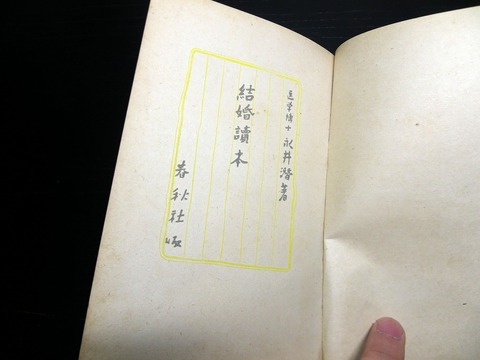 医学博士 永井潜著
結婚讀本
春秋社版